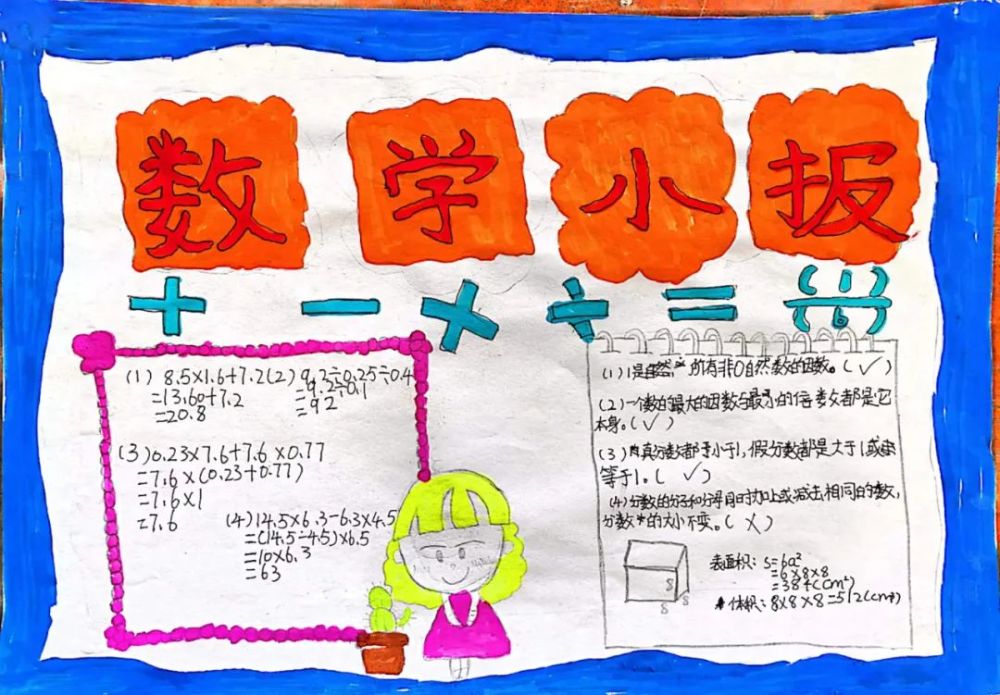 数学小报
+ - × ÷ = (1)/(6)
(1) 8.5×1.6+7.2 (2) 9.2÷0.25÷0.4
=13.60+7.2 =9.2÷0.1
=20.8 =92
(3) 0.23×7.6+7.6×0.77
=7.6×(0.23+0.77)
=7.6×1
=7.6
(4) 14.5×6.3-6.3×4.5
=(14.5-4.5)×6.5
=10×6.3
=63
(1) 1是所有非0自然数的因数。(✓)
(2) 一个数的最大的因数与最小的倍数都是它
本身。(✓)
(3) 真分数都小于1,假分数都是大于1或
等于1。(✓)
(4) 分数的分子和分母同时加上或减去相同的数,
分数的大小不变。(×)
8
8
8
表面积: S=6a²
=6×8×8
=384(cm²)
体积: 8×8×8=512(cm³)